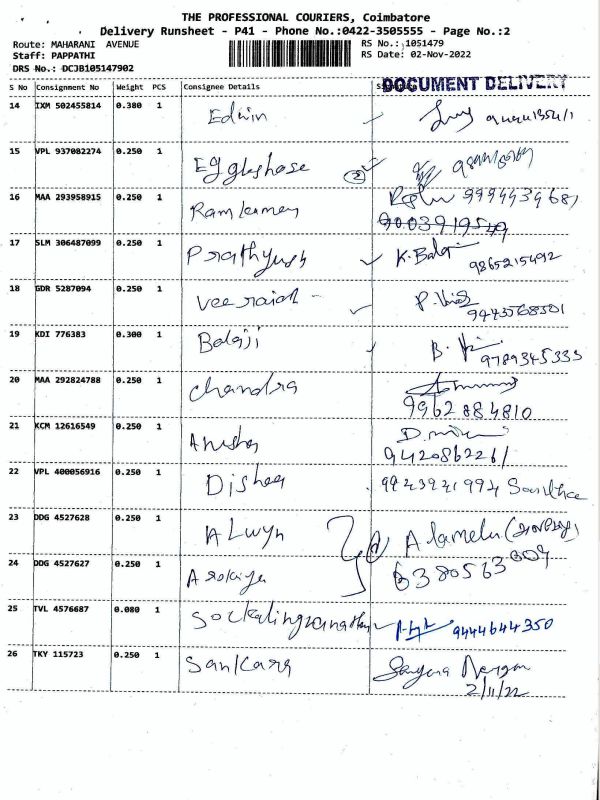 THE PROFESSIONAL COURIERS, Coimbatore
Delivery Runsheet - P41 - Phone No.:0422-3505555 - Page No.:2
Route: MAHARANI AVENUE
RS No.: 1051479
Staff: PAPPATHI
RS Date: 02-Nov-2022
DRS No.: DCJB105147902
DOCUMENT DELIVERY
S No Consignment No Weight PCS Consignee Details
14 IXM 502455814 0.380 1 Edwin
15 VPL 937082274 0.250 1
16 MAA 293958915 0.250 1
9003919549
17 SLM 306487099 0.250 1 Prathyush K. Balaji
9865215492
18 GDR 5287094 0.250 1 Veeraiah
19 KDI 776383 0.300 1 Balaji
9789345333
20 MAA 292824788 0.250 1 Chandra
9962884810
21 KCM 12616549 0.250 1
9420862261
22 VPL 400056916 0.250 1
23 DDG 4527628 0.250 1 Alwyn
24 DDG 4527627 0.250 1 Arokiya
25 TVL 4576687 0.080 1 9444644350
26 TKY 115723 0.250 1 Sankara
2/11/22